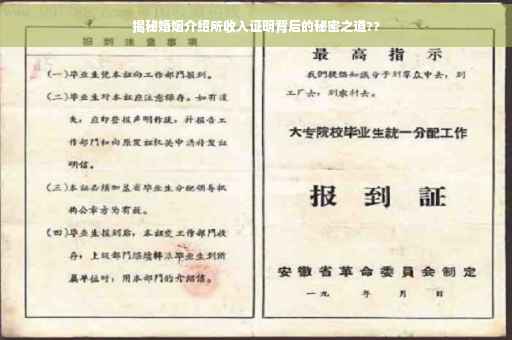 揭秘婚姻介绍所收入证明背后的秘密之道??
报到注意事项
(一)毕业生凭本证向工作部门报到。
(二)毕业生对本证应注意保存。如有遗
失，应即登报声明作废，并报告工
作部门和向原发证机关申请补发证
明信。
(三)本证必须加盖省毕业生分配领导机
构公章方为有效。
(四)毕业生报到后，本证交工作部门收
存；上级部门
毕业生到所
属单位时，用本部门的介绍信。
最高指示
我们提倡知识分子到群众中去，到
工厂去，到农村去。
大专院校毕业生统一分配工作
报到证
安徽省革命委员会制定
一九 年 月 日